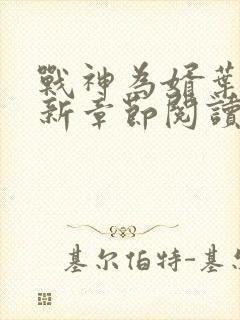 戰神為婿葉
新章節閱讀
基尔伯特-基尔